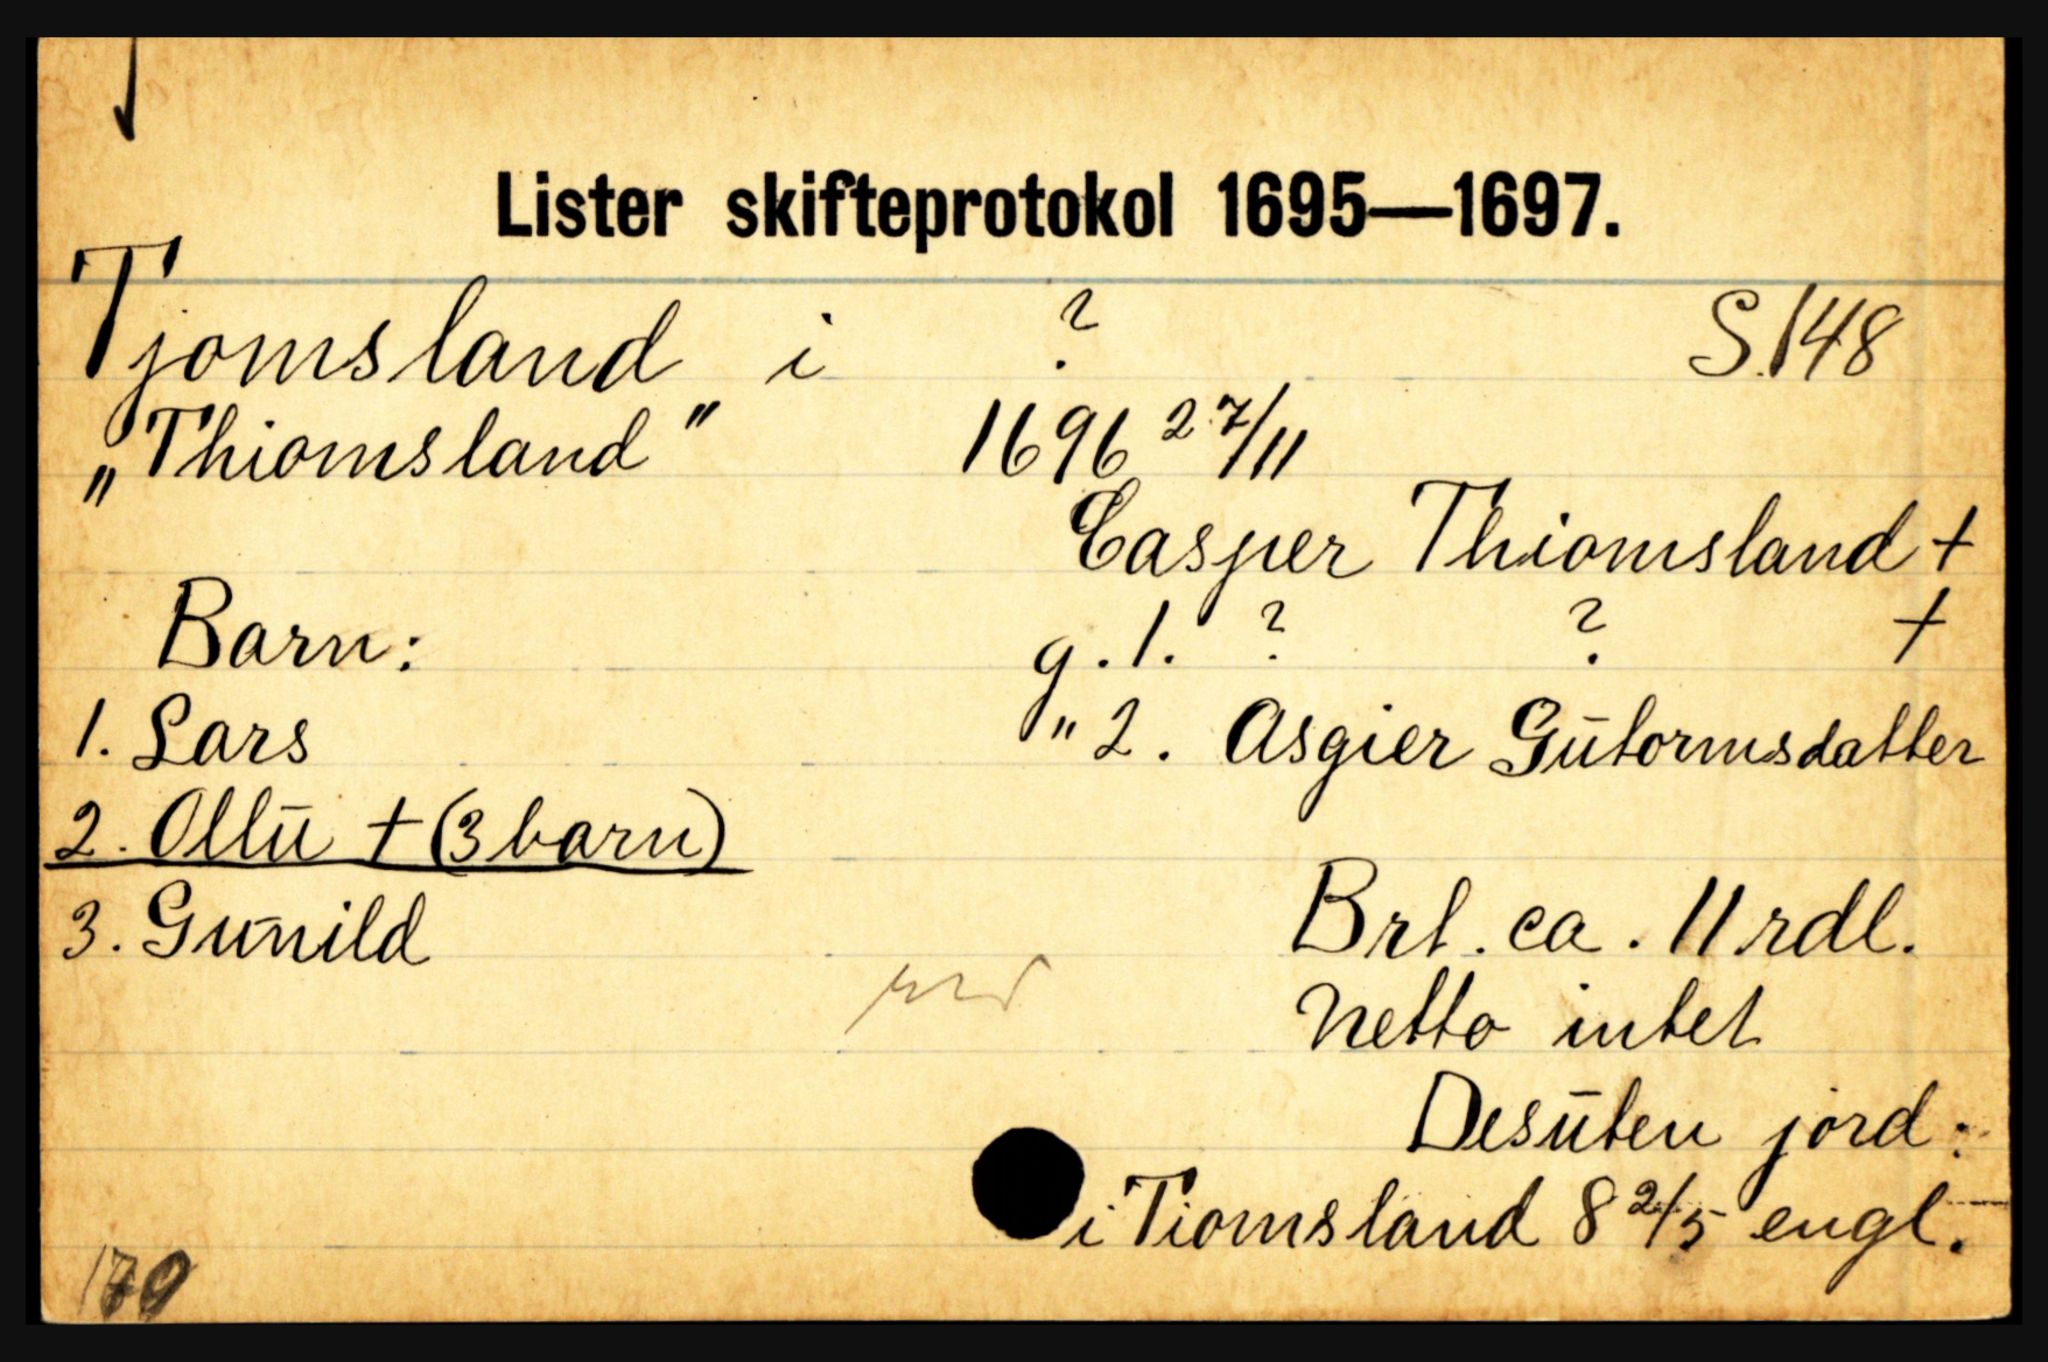 Lister skifteprotokol 1695—1697.
Tjomsland i ? S.148
„Thiomsland" 1696 27/11
Casper Thiomsland +
Barn: g. 1. ? ? +
1. Lars " 2. Asgier Gūtormsdatter
2. Ollū + (3 barn)
3. Gunild Brt. ca. 11 rdl.
Netto intet
Desūten jord:
i Tiomsland 8 2/5 engl.